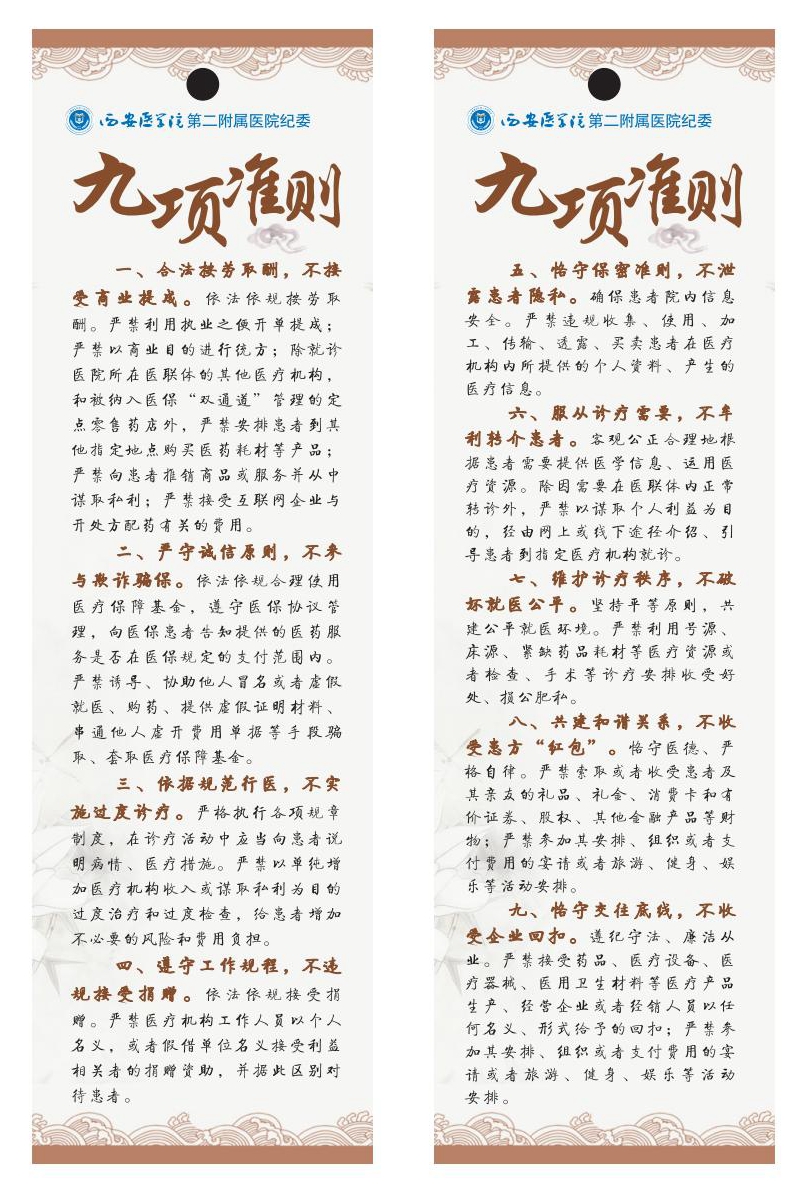 西安医学院第二附属医院纪委
九项准则
一、合法按劳取酬，不接
受商业提成。依法依规按劳取
酬。严禁利用执业之便开单提成；
严禁以商业目的进行统方；除就诊
医院所在医联体的其他医疗机构，
和被纳入医保“双通道”管理的定
点零售药店外，严禁安排患者到其
他指定地点购买医药耗材等产品；
严禁向患者推销商品或服务并从中
谋取私利；严禁接受互联网企业与
开处方配药有关的费用。
二、严守诚信原则，不参
与欺诈骗保。依法依规合理使用
医疗保障基金，遵守医保协议管
理，向医保患者告知提供的医药服
务是否在医保规定的支付范围内。
严禁诱导、协助他人冒名或者虚假
就医、购药、提供虚假证明材料、
串通他人虚开费用单据等手段骗
取、套取医疗保障基金。
三、依据规范行医，不实
施过度诊疗。严格执行各项规章
制度，在诊疗活动中应当向患者说
明病情、医疗措施。严禁以单纯增
加医疗机构收入或谋取私利为目的
过度治疗和过度检查，给患者增加
不必要的风险和费用负担。
四、遵守工作规程，不违
规接受捐赠。依法依规接受捐
赠。严禁医疗机构工作人员以个人
名义，或者假借单位名义接受利益
相关者的捐赠资助，并据此区别对
待患者。
西安医学院第二附属医院纪委
九项准则
五、恪守保密准则，不泄
露患者隐私。确保患者院内信息
安全。严禁违规收集、使用、加
工、传输、透露、买卖患者在医疗
机构内所提供的个人资料、产生的
医疗信息。
六、服从诊疗需要，不牟
利转介患者。客观公正合理地根
据患者需要提供医学信息、运用医
疗资源。除因需要在医联体内正常
转诊外，严禁以谋取个人利益为目
的，经由网上或线下途径介绍、引
导患者到指定医疗机构就诊。
七、维护诊疗秩序，不破
坏就医公平。坚持平等原则，共
建公平就医环境。严禁利用号源、
床源、紧缺药品耗材等医疗资源或
者检查、手术等诊疗安排收受好
处、损公肥私。
八、共建和谐关系，不收
受患方“红包”。恪守医德、严
格自律。严禁索取或者收受患者及
其亲友的礼品、礼金、消费卡和有
价证券、股权、其他金融产品等财
物；严禁参加其安排、组织或者支
付费用的宴请或者旅游、健身、娱
乐等活动安排。
九、恪守交往底线，不收
受企业回扣。遵纪守法、廉洁从
业。严禁接受药品、医疗设备、医
疗器械、医用卫生材料等医疗产品
生产、经营企业或者经销人员以任
何名义、形式给予的回扣；严禁参
加其安排、组织或者支付费用的宴
请或者旅游、健身、娱乐等活动
安排。